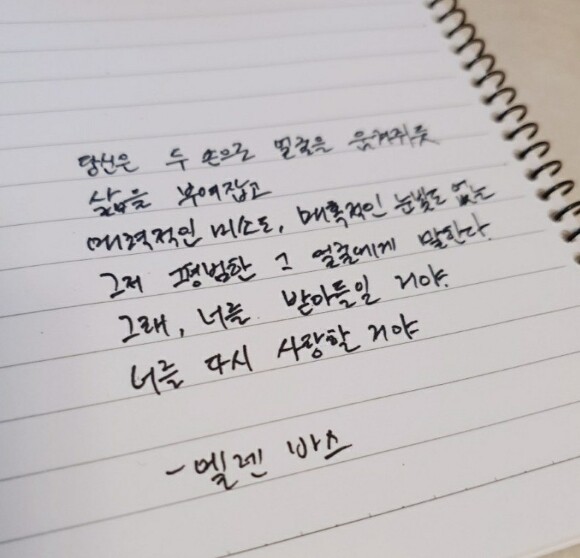 당신은 두 손으로 얼굴을 움켜쥐듯
삶을 부여잡고
매력적인 미소도, 매혹적인 눈빛도 없는
그저 평범한 그 얼굴에게 말한다.
그래, 너를 받아들일 거야.
너를 다시 사랑할 거야
- 엘렌 바스